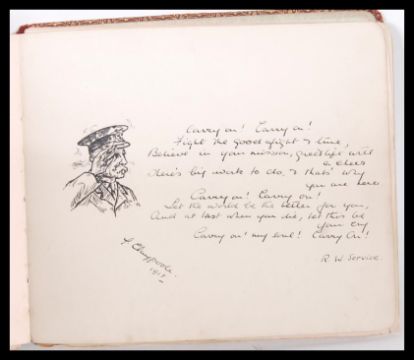 Carry on! Carry on!
Fight the good fight & true,
Believe in your mission, greet life with
a cheer
There's big work to do, & that's why
you are here
Carry on! Carry on!
Let the world be the better for you,
And at last when you die, let this be
your cry
Carry on! my soul! Carry On!
R. W. Service.
1918